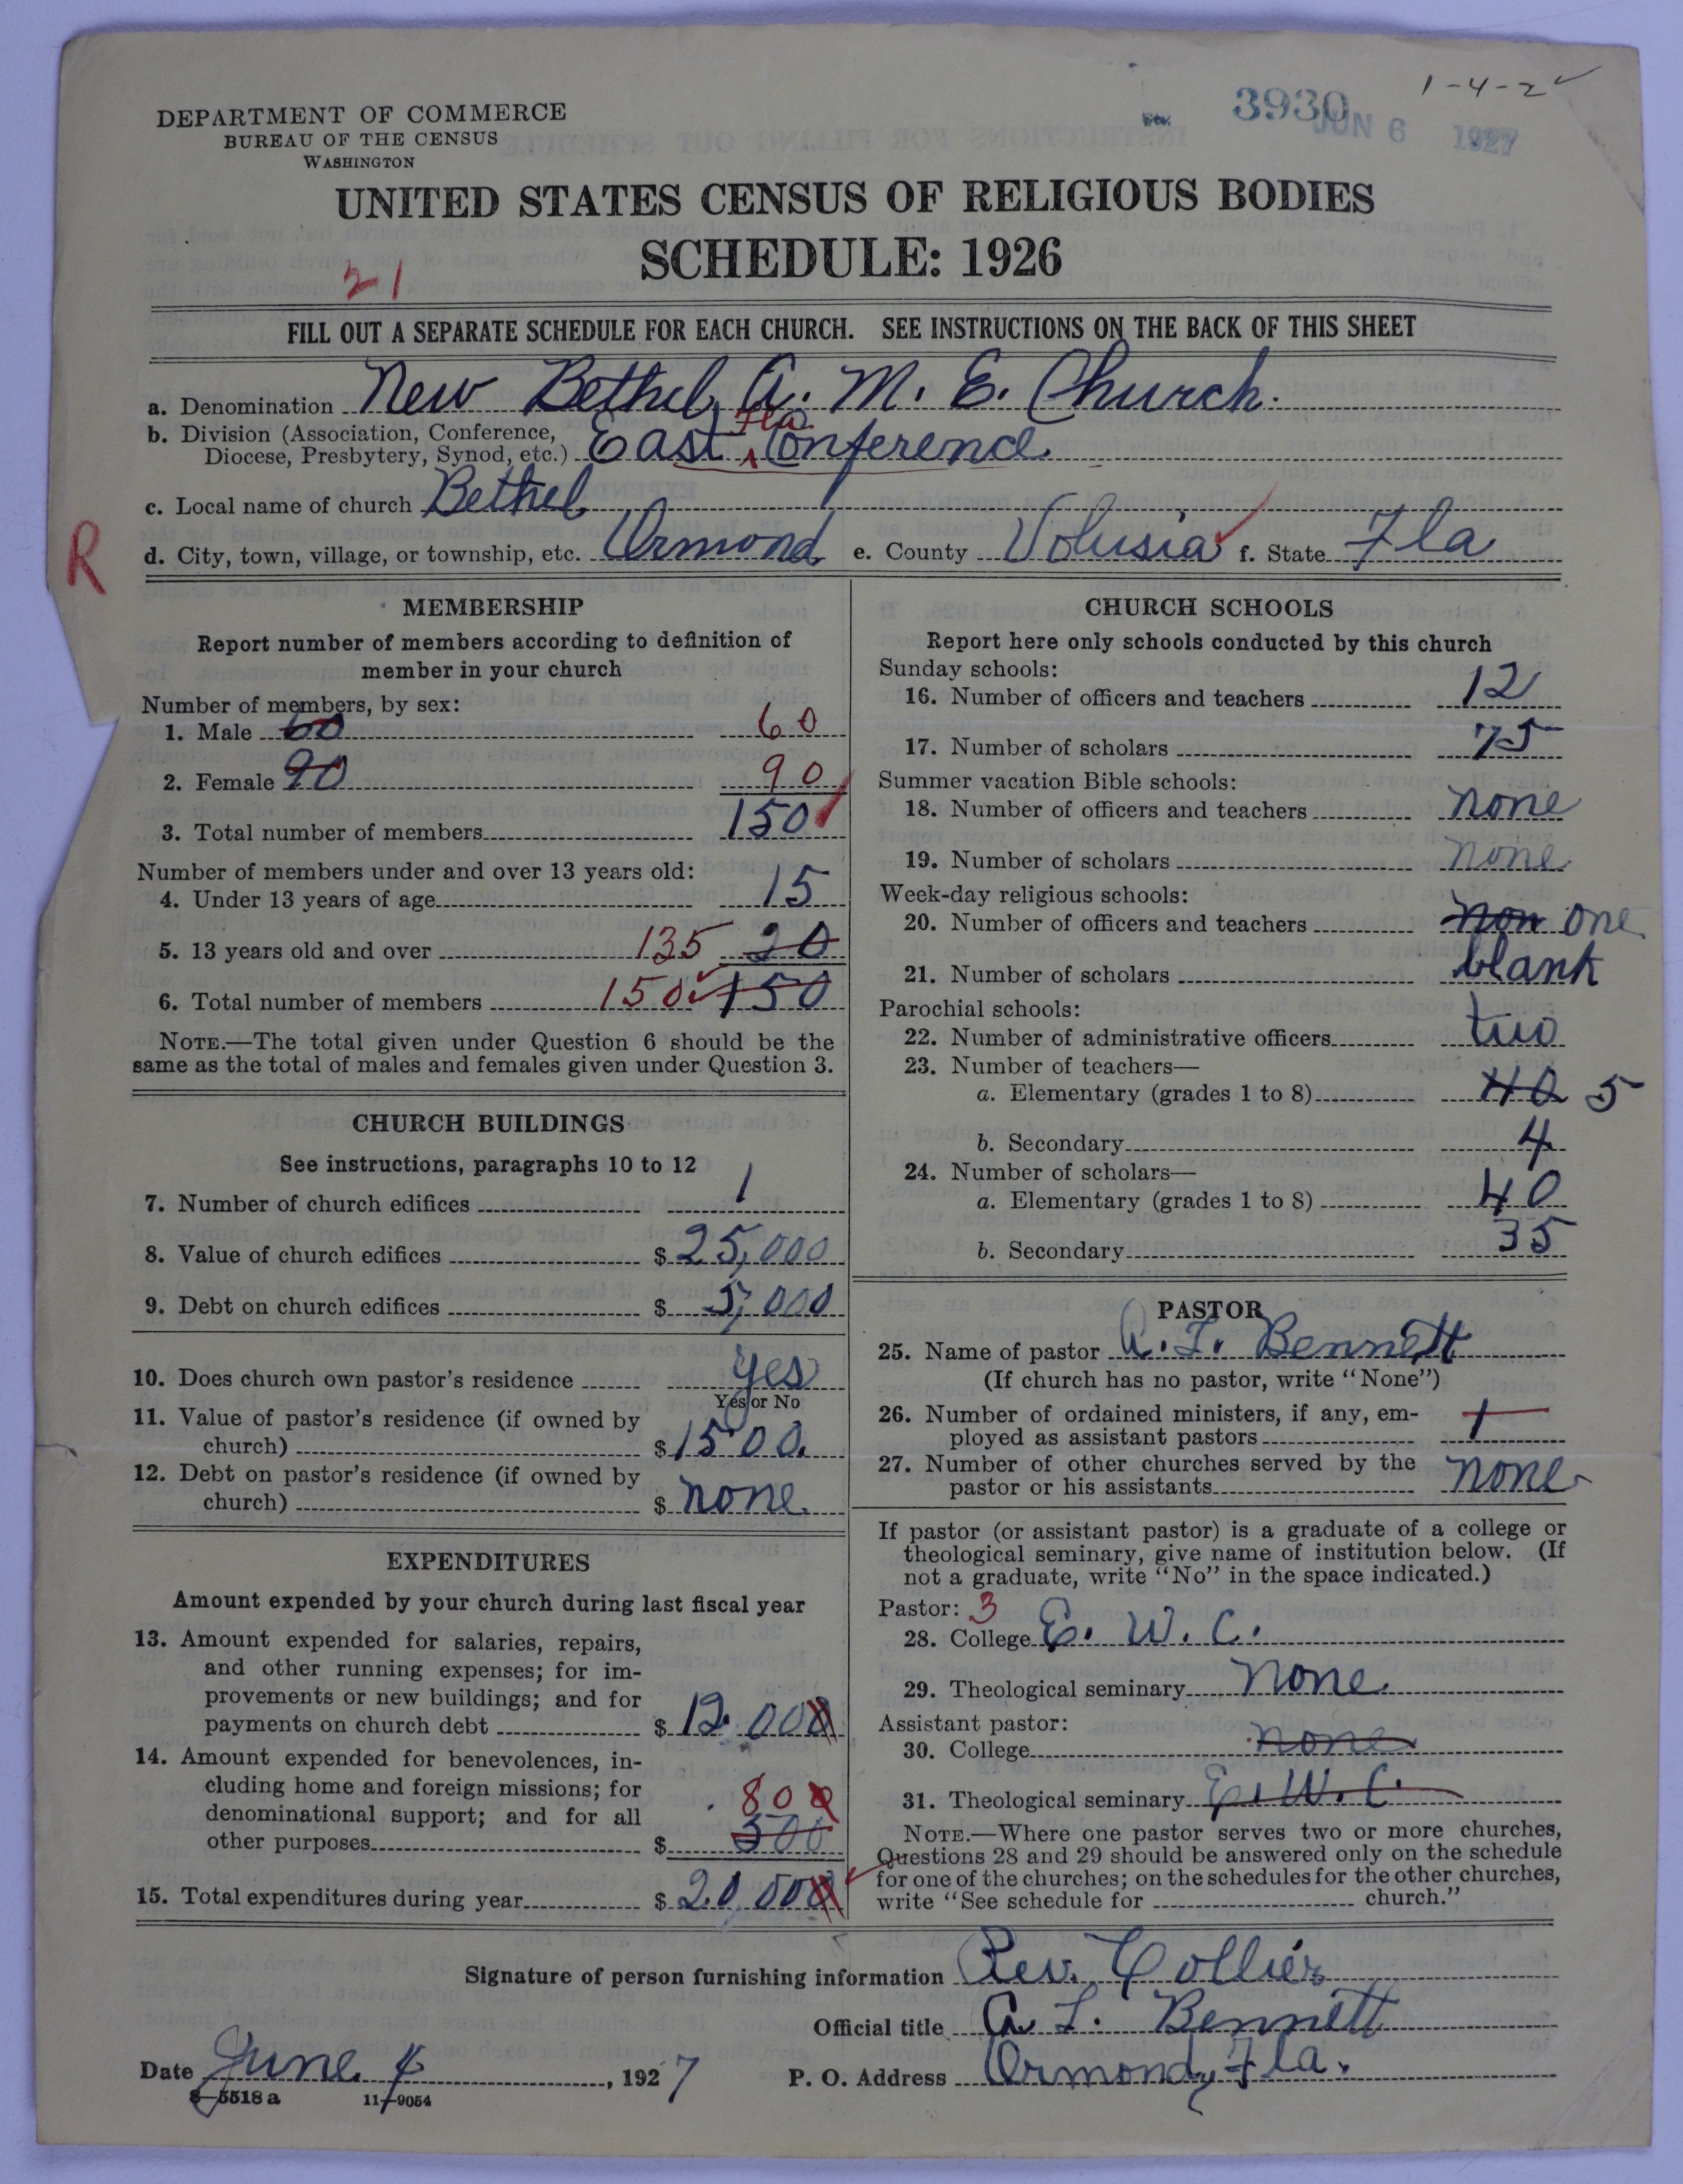 1-4-2
3930
JUN 6 1927
DEPARTMENT OF COMMERCE
BUREAU OF THE CENSUS
WASHINGTON
UNITED STATES CENSUS OF RELIGIOUS BODIES
SCHEDULE: 1926
21
FILL OUT A SEPARATE SCHEDULE FOR EACH CHURCH. SEE INSTRUCTIONS ON THE BACK OF THIS SHEET
a. Denomination New Bethel, A. M. E. Church.
b. Division (Association, Conference, Diocese, Presbytery, Synod, etc.) East Fla Conference
c. Local name of church Bethel
R
d. City, town, village, or township, etc. Ormond e. County Volusia f. State Fla
MEMBERSHIP
Report number of members according to definition of
member in your church
Number of members, by sex:
1. Male 60 60
2. Female 90 90
3. Total number of members 150
Number of members under and over 13 years old:
4. Under 13 years of age 15
5. 13 years old and over 135 20
6. Total number of members 150 150
NOTE.—The total given under Question 6 should be the
same as the total of males and females given under Question 3.
CHURCH BUILDINGS
See instructions, paragraphs 10 to 12
7. Number of church edifices 1
8. Value of church edifices $ 25,000
9. Debt on church edifices $ 5,000
10. Does church own pastor's residence yes
Yes or No
11. Value of pastor's residence (if owned by
church) $ 1500.
12. Debt on pastor's residence (if owned by
church) $ none.
EXPENDITURES
Amount expended by your church during last fiscal year
13. Amount expended for salaries, repairs,
and other running expenses; for im-
provements or new buildings; and for
payments on church debt $ 12.000
14. Amount expended for benevolences, in-
cluding home and foreign missions; for
denominational support; and for all
other purposes $ 800 500
15. Total expenditures during year $ 20,000
CHURCH SCHOOLS
Report here only schools conducted by this church
Sunday schools:
16. Number of officers and teachers 12
17. Number of scholars 75
Summer vacation Bible schools:
18. Number of officers and teachers none
19. Number of scholars none
Week-day religious schools:
20. Number of officers and teachers non one
21. Number of scholars blank
Parochial schools:
22. Number of administrative officers two
23. Number of teachers—
a. Elementary (grades 1 to 8) 40 5
b. Secondary 4
24. Number of scholars—
a. Elementary (grades 1 to 8) 40
b. Secondary 35
PASTOR
25. Name of pastor A. L. Bennett
(If church has no pastor, write "None")
26. Number of ordained ministers, if any, em-
ployed as assistant pastors 1
27. Number of other churches served by the
pastor or his assistants none
If pastor (or assistant pastor) is a graduate of a college or
theological seminary, give name of institution below. (If
not a graduate, write "No" in the space indicated.)
Pastor: 3
28. College E. W. C.
29. Theological seminary none
Assistant pastor:
30. College none
31. Theological seminary E. W. C.
NOTE.—Where one pastor serves two or more churches,
Questions 28 and 29 should be answered only on the schedule
for one of the churches; on the schedules for the other churches,
write "See schedule for church."
Signature of person furnishing information Rev. Collier
Official title A L. Bennett
Date June 4, 1927 P. O. Address Ormond, Fla.
8-5518 a 11-9054